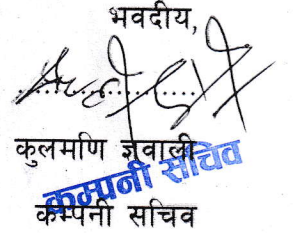 भवदीय,
कुलमणि ज्ञवाली
कम्पनी सचिव
कम्पनी सचिव